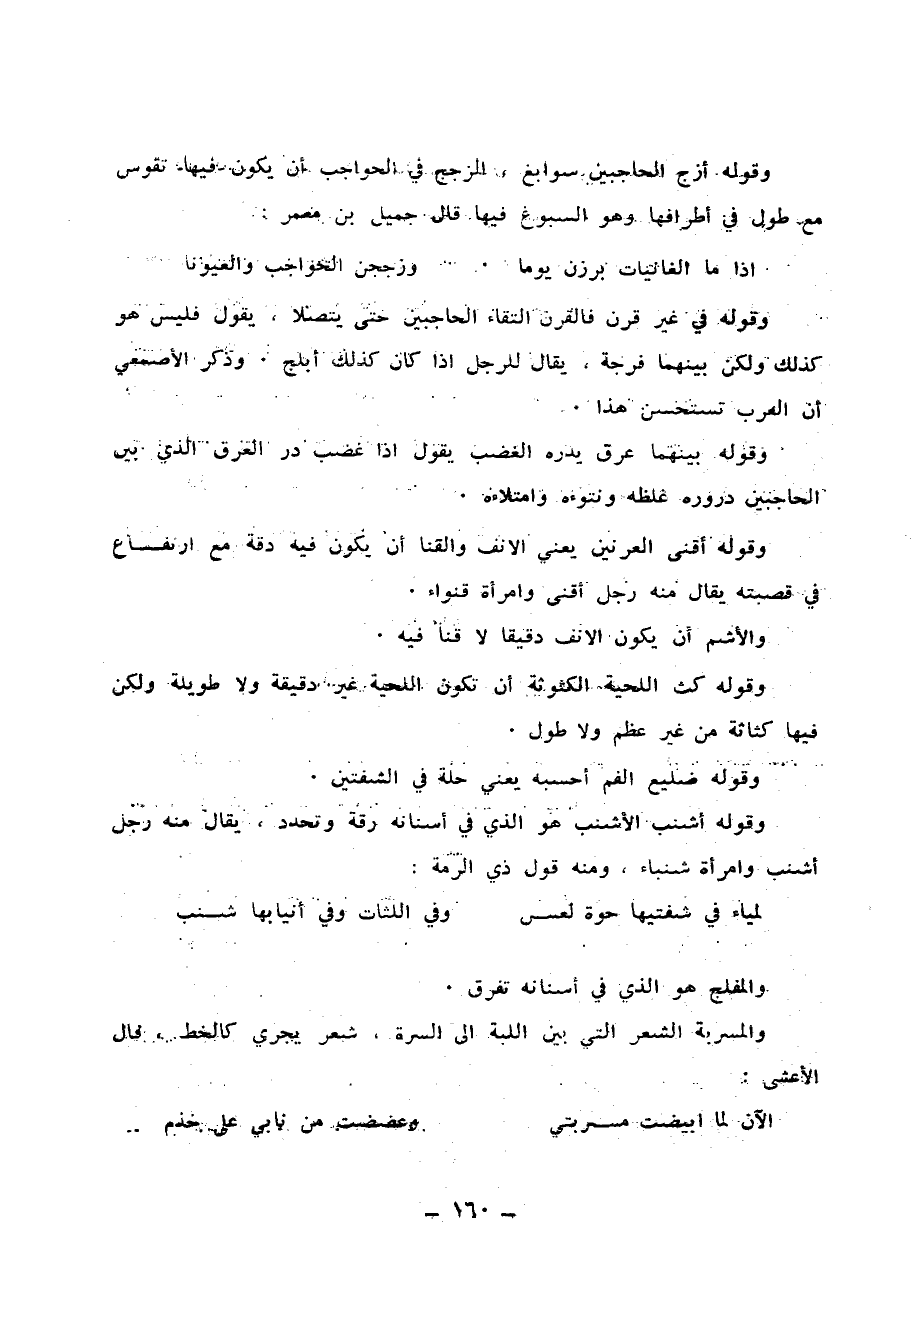 وقوله أزج الحاجبين سوابغ ، المزجج في الحواجب أن يكون فيها تقوس
مع طول في أطرافها وهو السبوغ فيها قال جميل بن معمر :
اذا ما الغانيات برزن يوما وزججن الحواجب والعيونا
وقوله في غير قرن فالقرن التقاء الحاجبين حتى يتصلا ، يقول فليس هو
كذلك ولكن بينهما فرجة ، يقال للرجل اذا كان كذلك أبلج . وذكر الأصمعي
أن العرب تستحسن هذا .
وقوله بينهما عرق يدره الغضب يقول اذا غضب در العرق الذي بين
الحاجبين دروره غلظه ونتوءه وامتلاءه .
وقوله أقنى العرنين يعني الانف والقنا أن يكون فيه دقة مع ارتفـــاع
في قصبته يقال منه رجل أقنى وامرأة قنواء .
والأشم أن يكون الانف دقيقا لا قنا فيه .
وقوله كث اللحية الكثوثة أن تكون اللحية غير دقيقة ولا طويلة ولكن
فيها كثاثة من غير عظم ولا طول .
وقوله ضليع الفم أحسبه يعني حلة في الشفتين .
وقوله أشنب الأشنب هو الذي في أسنانه رقة وتحدد ، يقال منه رجل
أشنب وامرأة شنباء ، ومنه قول ذي الرمة :
لمياء في شفتيها حوة لعس وفي اللثات وفي أنيابها شـــنب
والمفلج هو الذي في أسنانه تفرق .
والمسربة الشعر التي بين اللبة الى السرة ، شعر يجري كالخط ، قال
الأعشى :
الآن لما ابيضت مســـربتي وعضضت من نابي على جذم ..
– ١٦٠ –